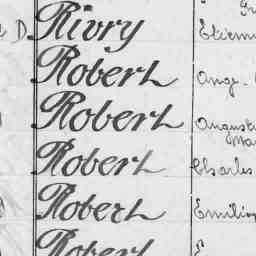 D. Rivry Etienn
Robert Ange-
Robert Augusti
Robert Charles
Robert Emilien
Robert